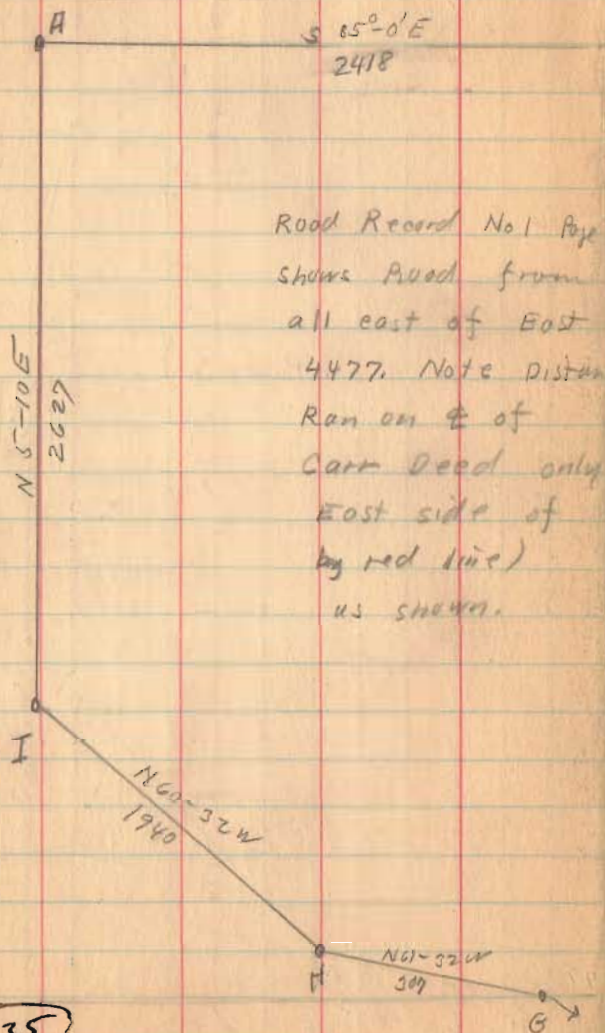 A
S 85°-0' E
2418
Road Record No 1 Page
shows Road from
all east of East
4477. Note Distan
Ran on ℄ of
Carr Deed only
East side of
by red line)
as shown.
N 5-10E
2627
I
N60-32W
1940
H
N61-32W
307
G
35